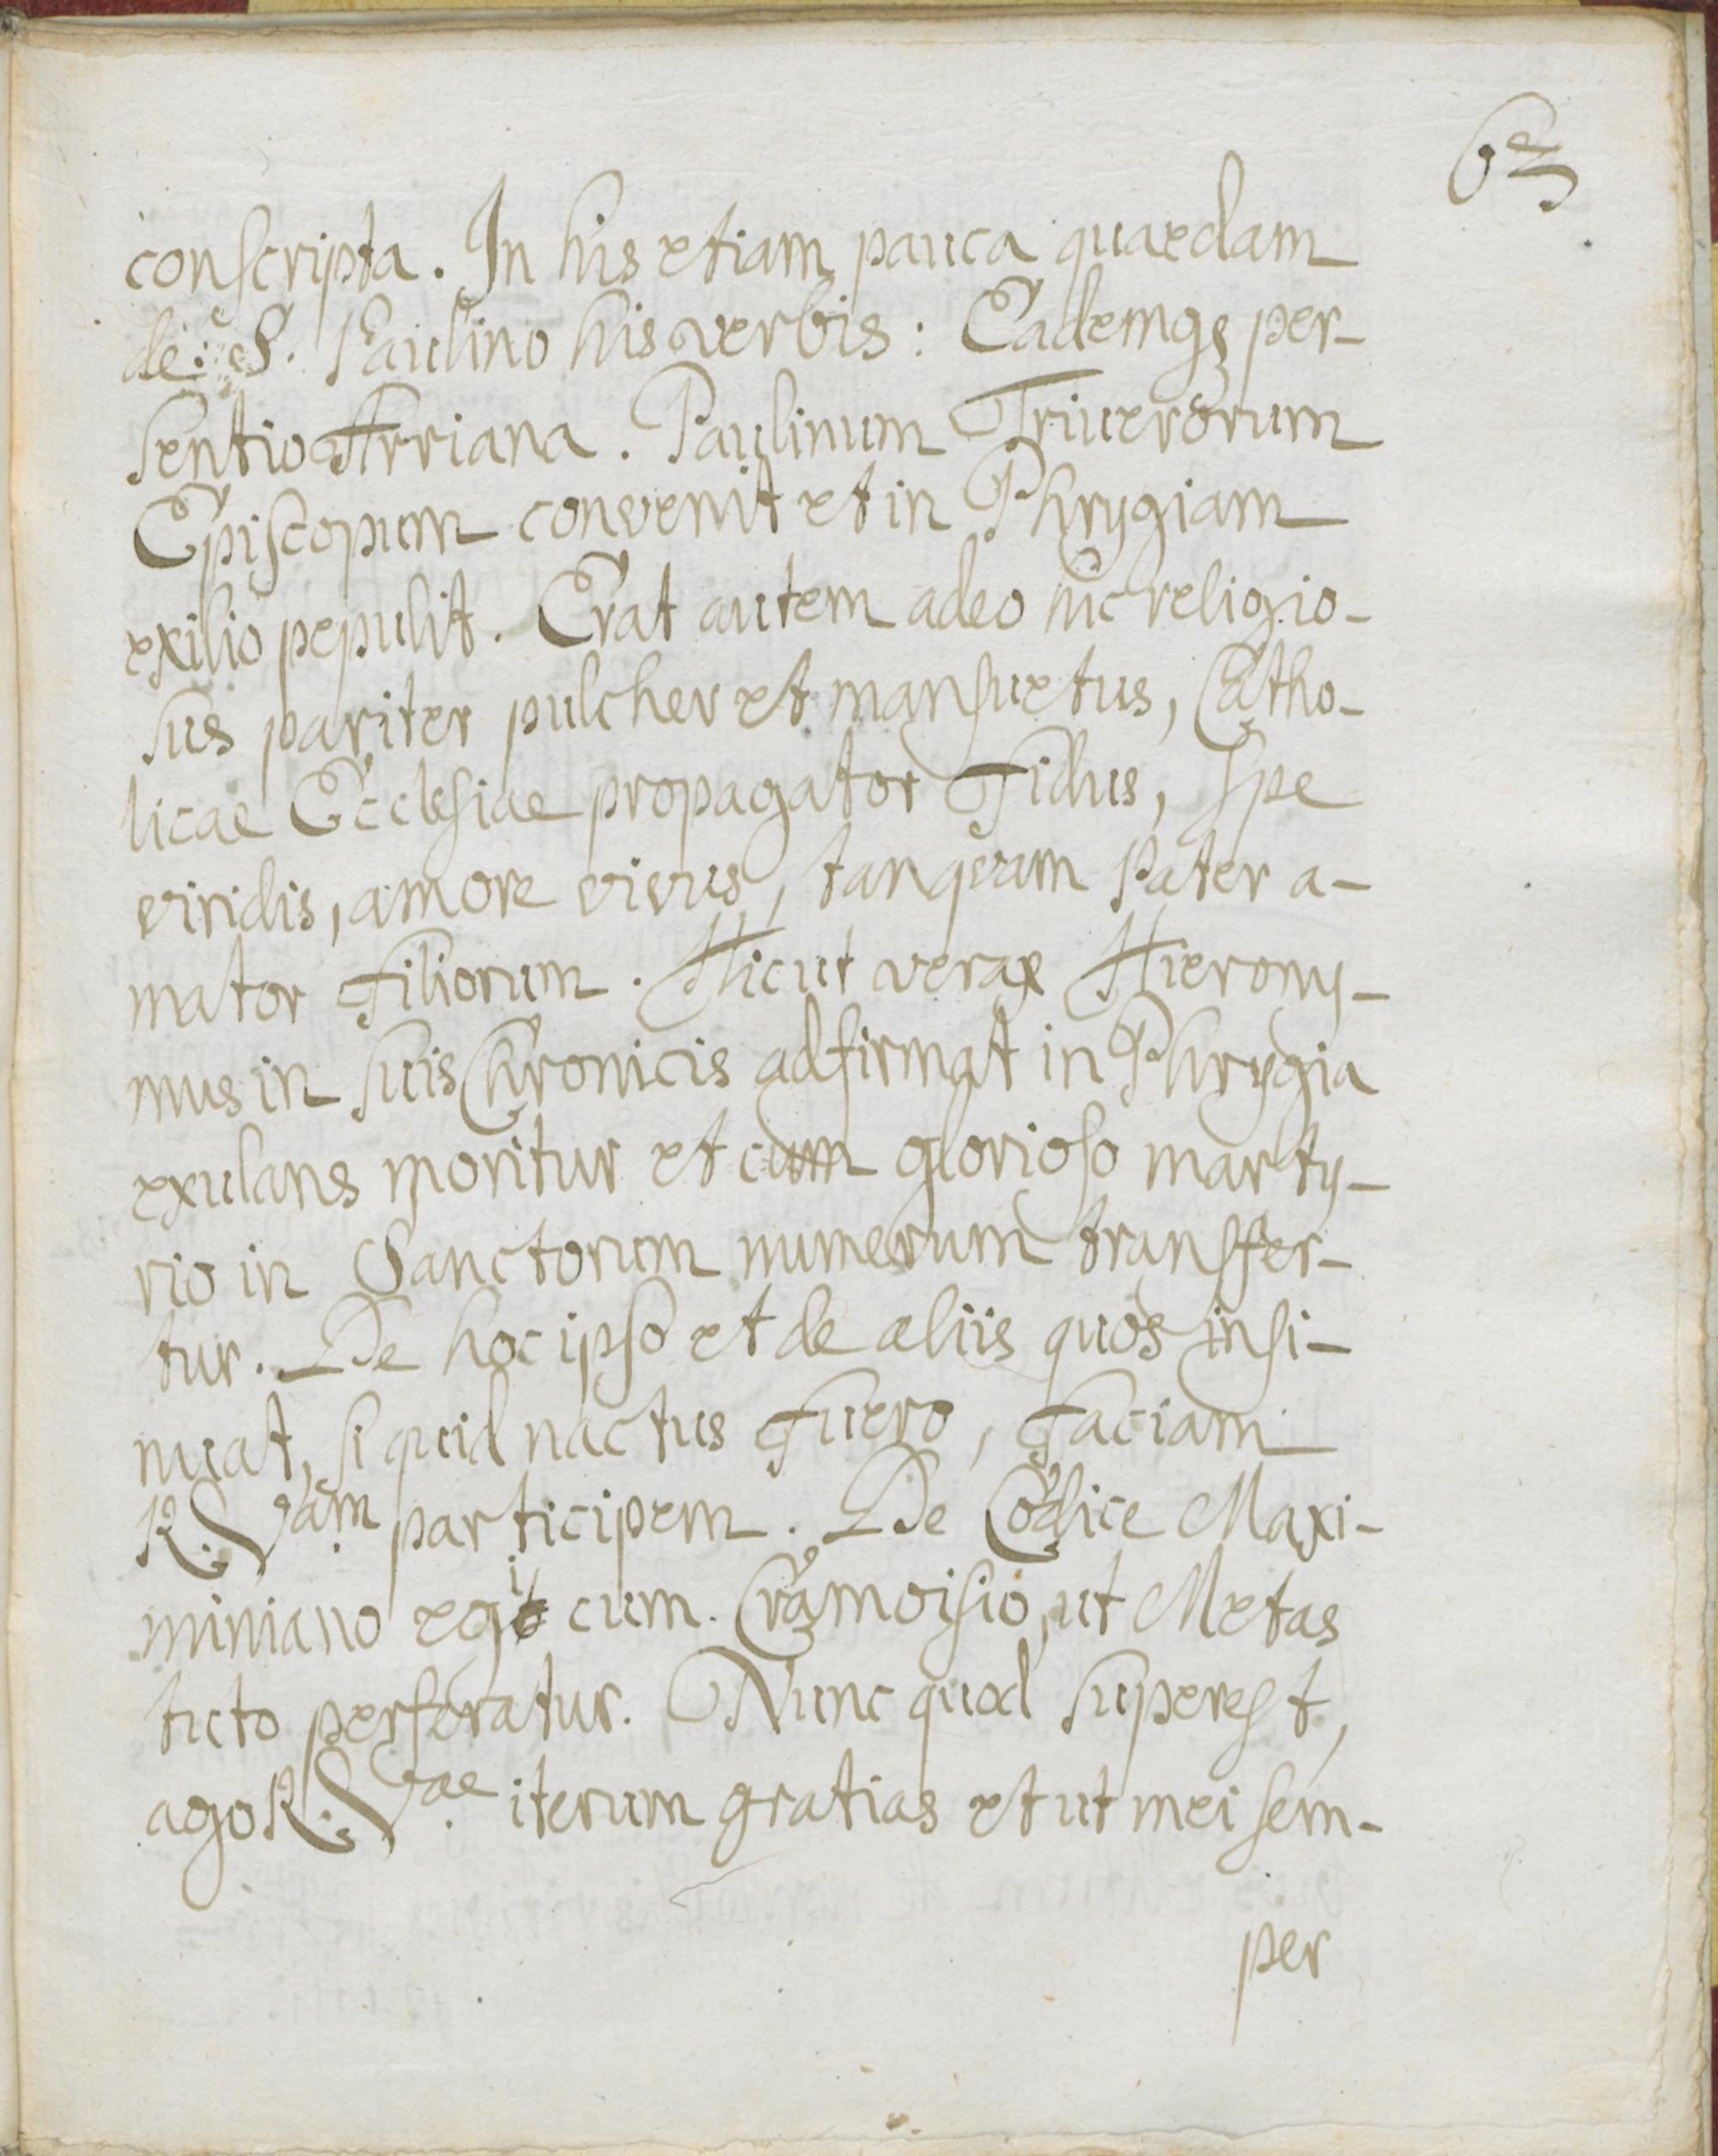 63
conscripta. In his etiam pauca quaedam
de S. Paulino his verbis: Eademq; per-
sentio Arriana. Paulinum Triuerorum
Episcopum convenit et in Phrygiam
exilio pepulit. Erat autem adeo hic religio-
sus pariter pulcher et mansuetus, Catho-
licae Ecclesiae propagator Fidus, spe
viridis, amore vivus, tanquam Pater a-
mator Filiorum. Hic ut verax Hierony-
mus in suis Chronicis adfirmat in Phrygia
exulans moritur et cum glorioso marty-
rio in Sanctorum numerum transfer-
tur. De hoc ipso et de aliis quos insi-
nuat, si quid nactus Fuero, Faciam
R. Vam participem. De Codice Maxi-
miniano egi cum Cramoisio, ut Metas
tuto perferatur. Nunc quod superest,
ago R. Vae iterum gratias et ut mei sem-
per